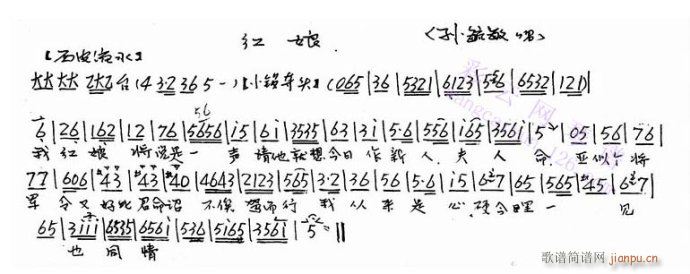 红 娘 (孙毓敏唱)
【西皮流水】
大大 大大 台 (4 3·2 3 6 5 -) 【小锣夺头】 (065|36|5321|6123|6532|121)
6|26|162|12|76|5656|i5|6i|3535|63|3i|5·6|556|i65|356i|5|05|56|76|
我 红 娘 将 说是 一 声 请 他 就 想 今日 作 新 人 夫 人 命 亚 似 个 将
77|606|43|43|40|4643|2123|565|3·2|36|56|5·6|i5|65|565|45|
军 令 又 好比 君命 不 俟 驾而行 我 从 来 是 心 硬 今日里 一 见
65|3iii|6535|656i|536|5i65|356i|5||
也 同 情
歌谱简谱网
jianpu.cn